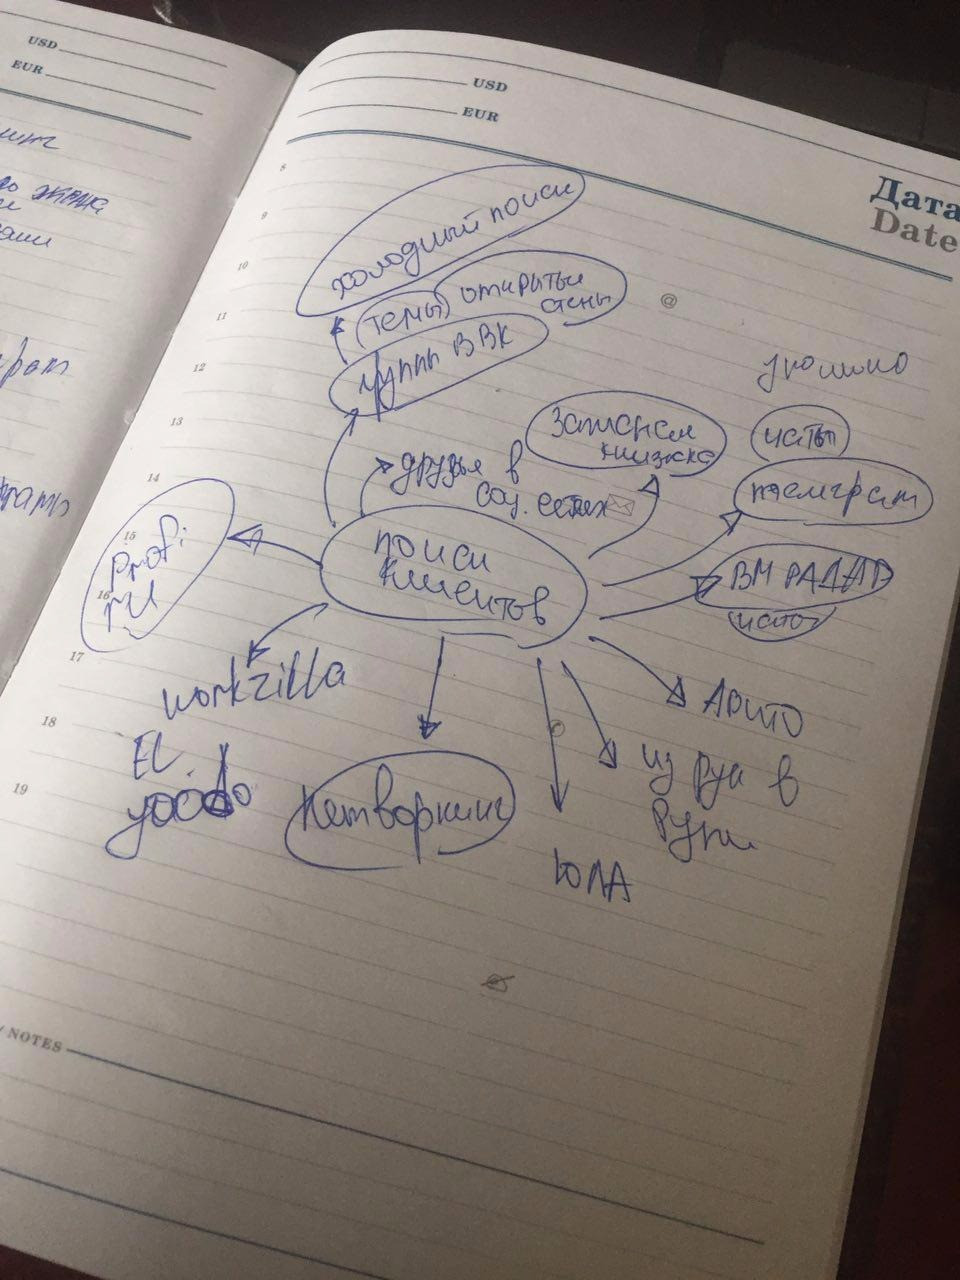 USD
EUR
USD
EUR
Дата
Date
8
9
10
11
12
13
14
15
16
17
18
19
холодный поиск
темы
открытые
стены
группы В ВК
записная
книжка
чаты
телеграм
друзья в
соц. сетях
поиск
клиентов
profi
ru
ВМ РАДАР
чаты
workzilla
FL
youdo
нетворкинг
Авито
из рук в
руки
ЮЛА
NOTES